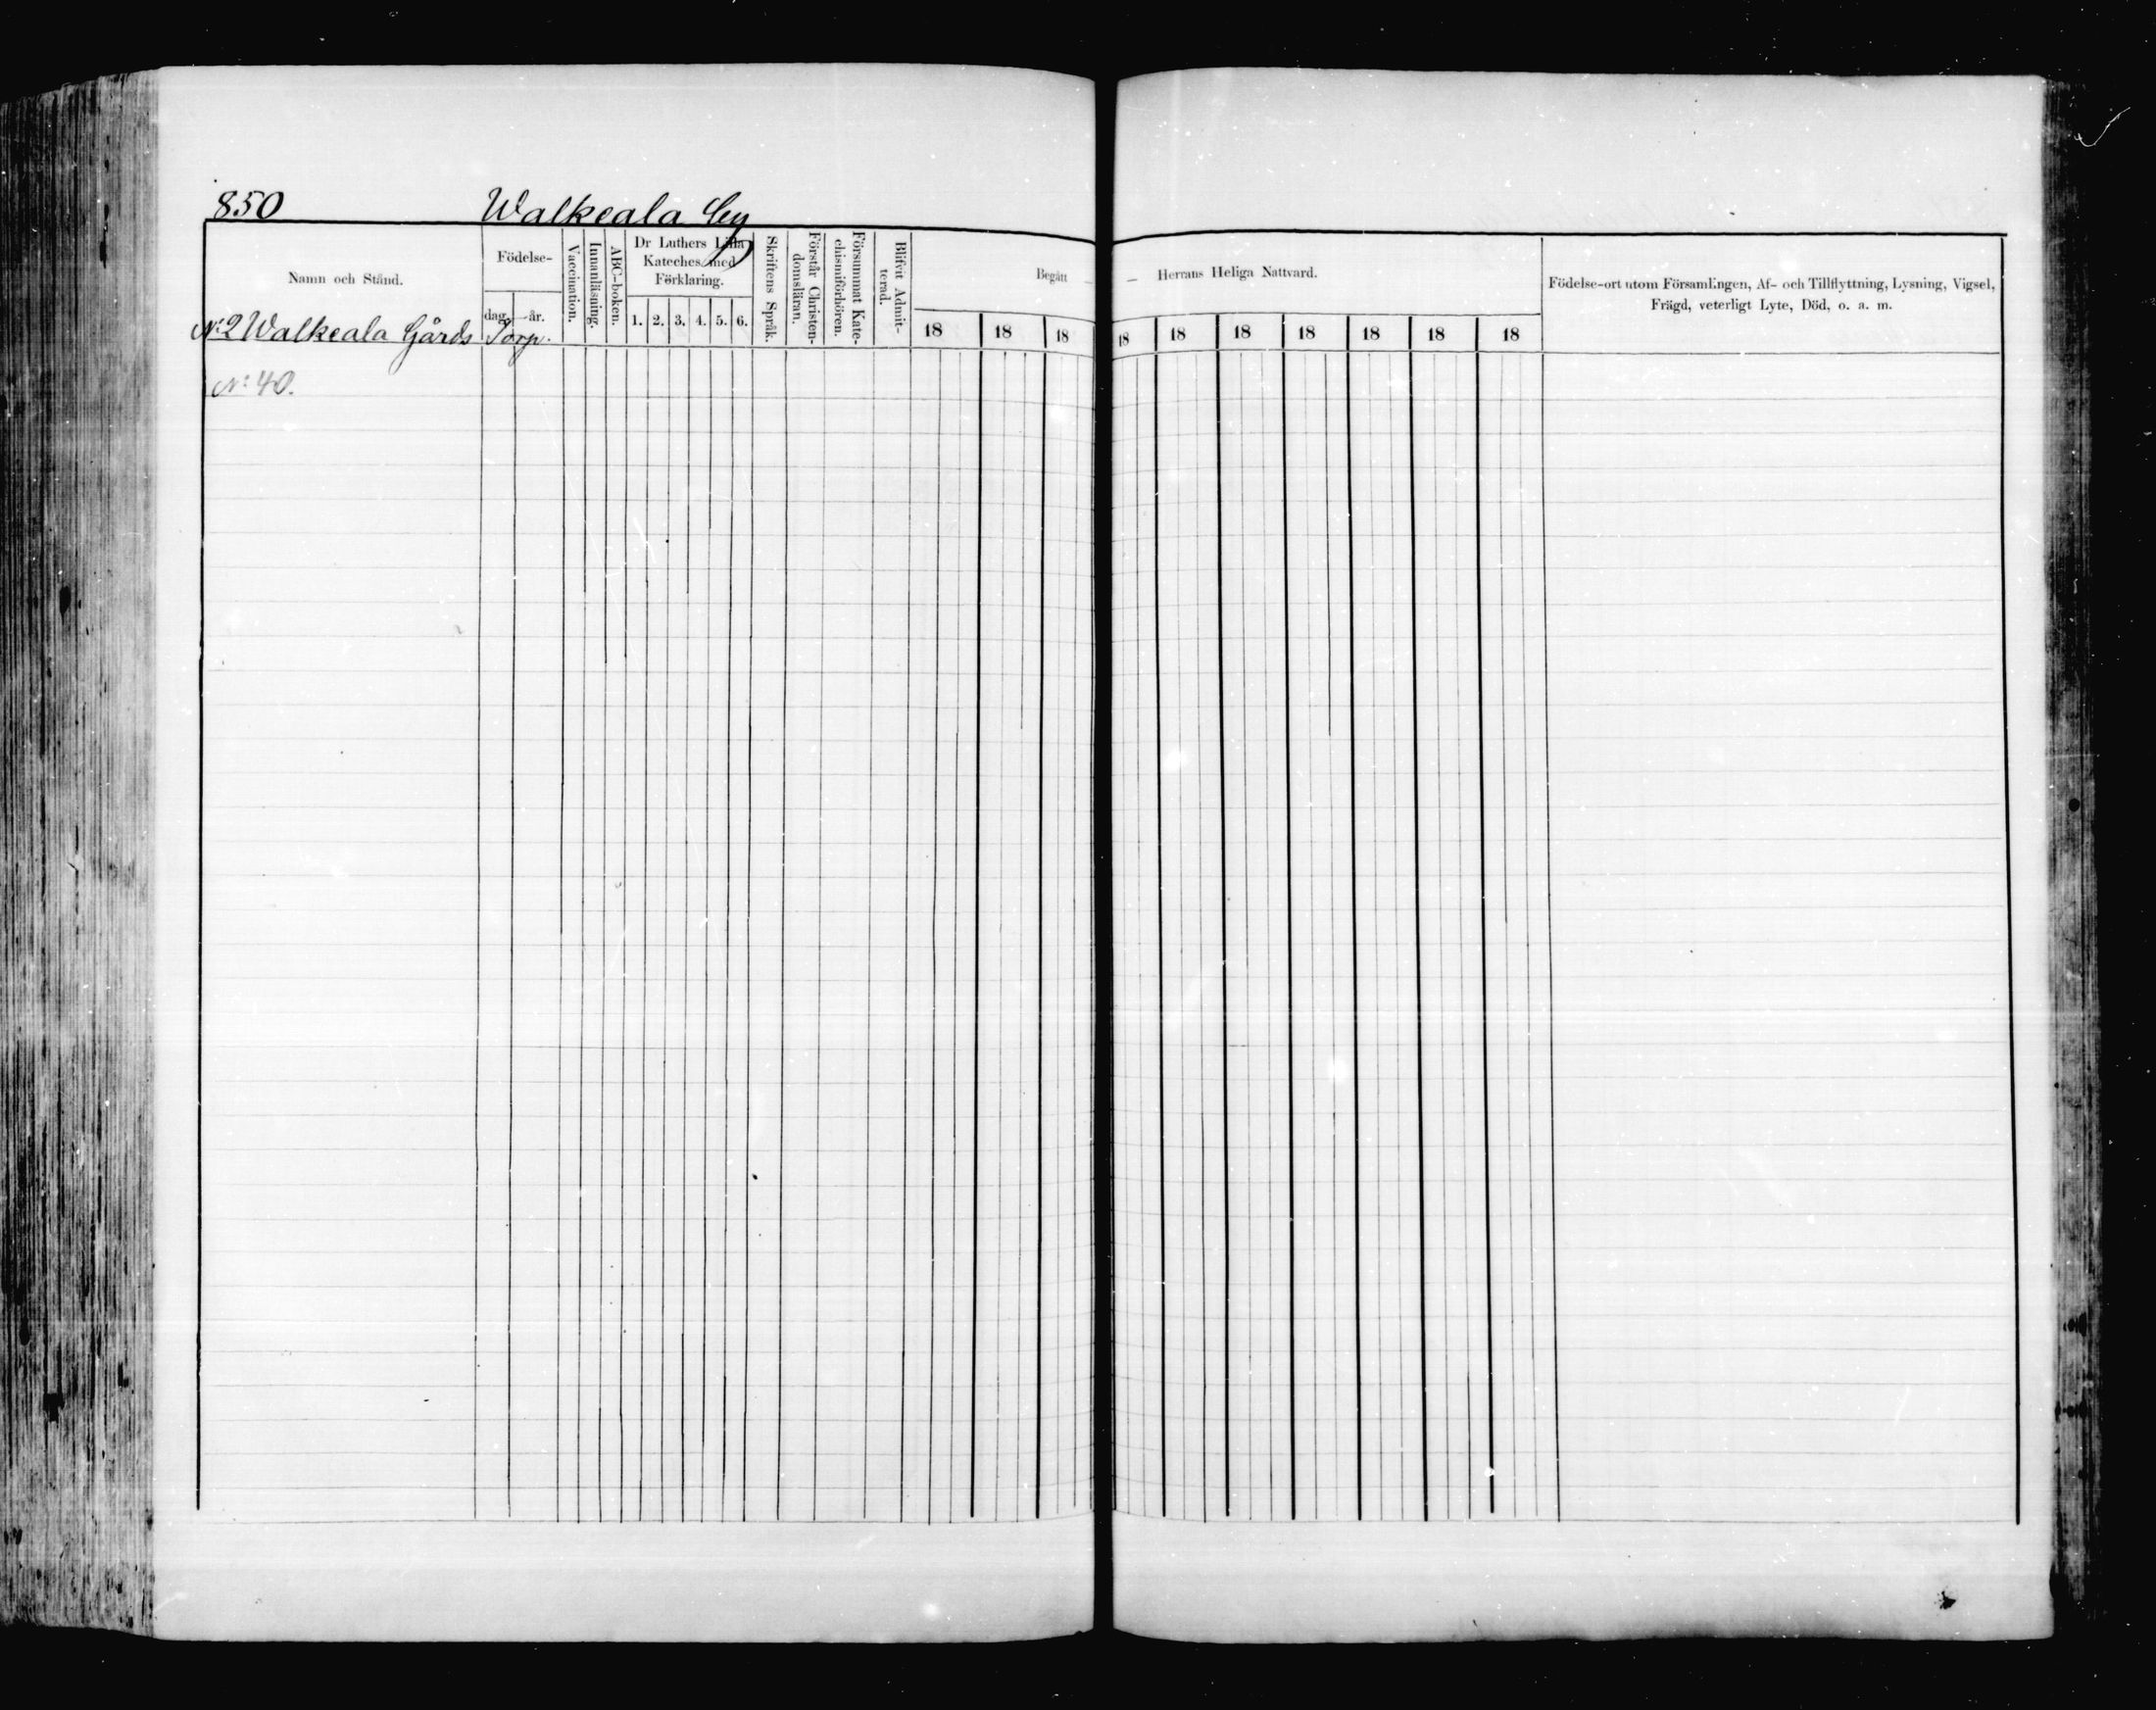 850 Walkeala By
Namn och Stånd.
Födelse-
dag. år.
Vaccination.
Innanläsning.
ABC-boken.
Dr Luthers Lilla
Kateches med
Förklaring.
1. 2. 3. 4. 5. 6.
Skriftens Språk.
Förstår Christen-
domsläran.
Försummat Kate-
chismiförhören.
Blifvit Admit-
terad.
Begått — — Herrans Heliga Nattvard.
18 18 18 18 18 18 18 18 18 18
Födelse-ort utom Församlingen, Af- och Tillflyttning, Lysning, Vigsel,
Frägd, veterligt Lyte, Död, o. a. m.
N:2 Walkeala Gårds Torp.
N:40.